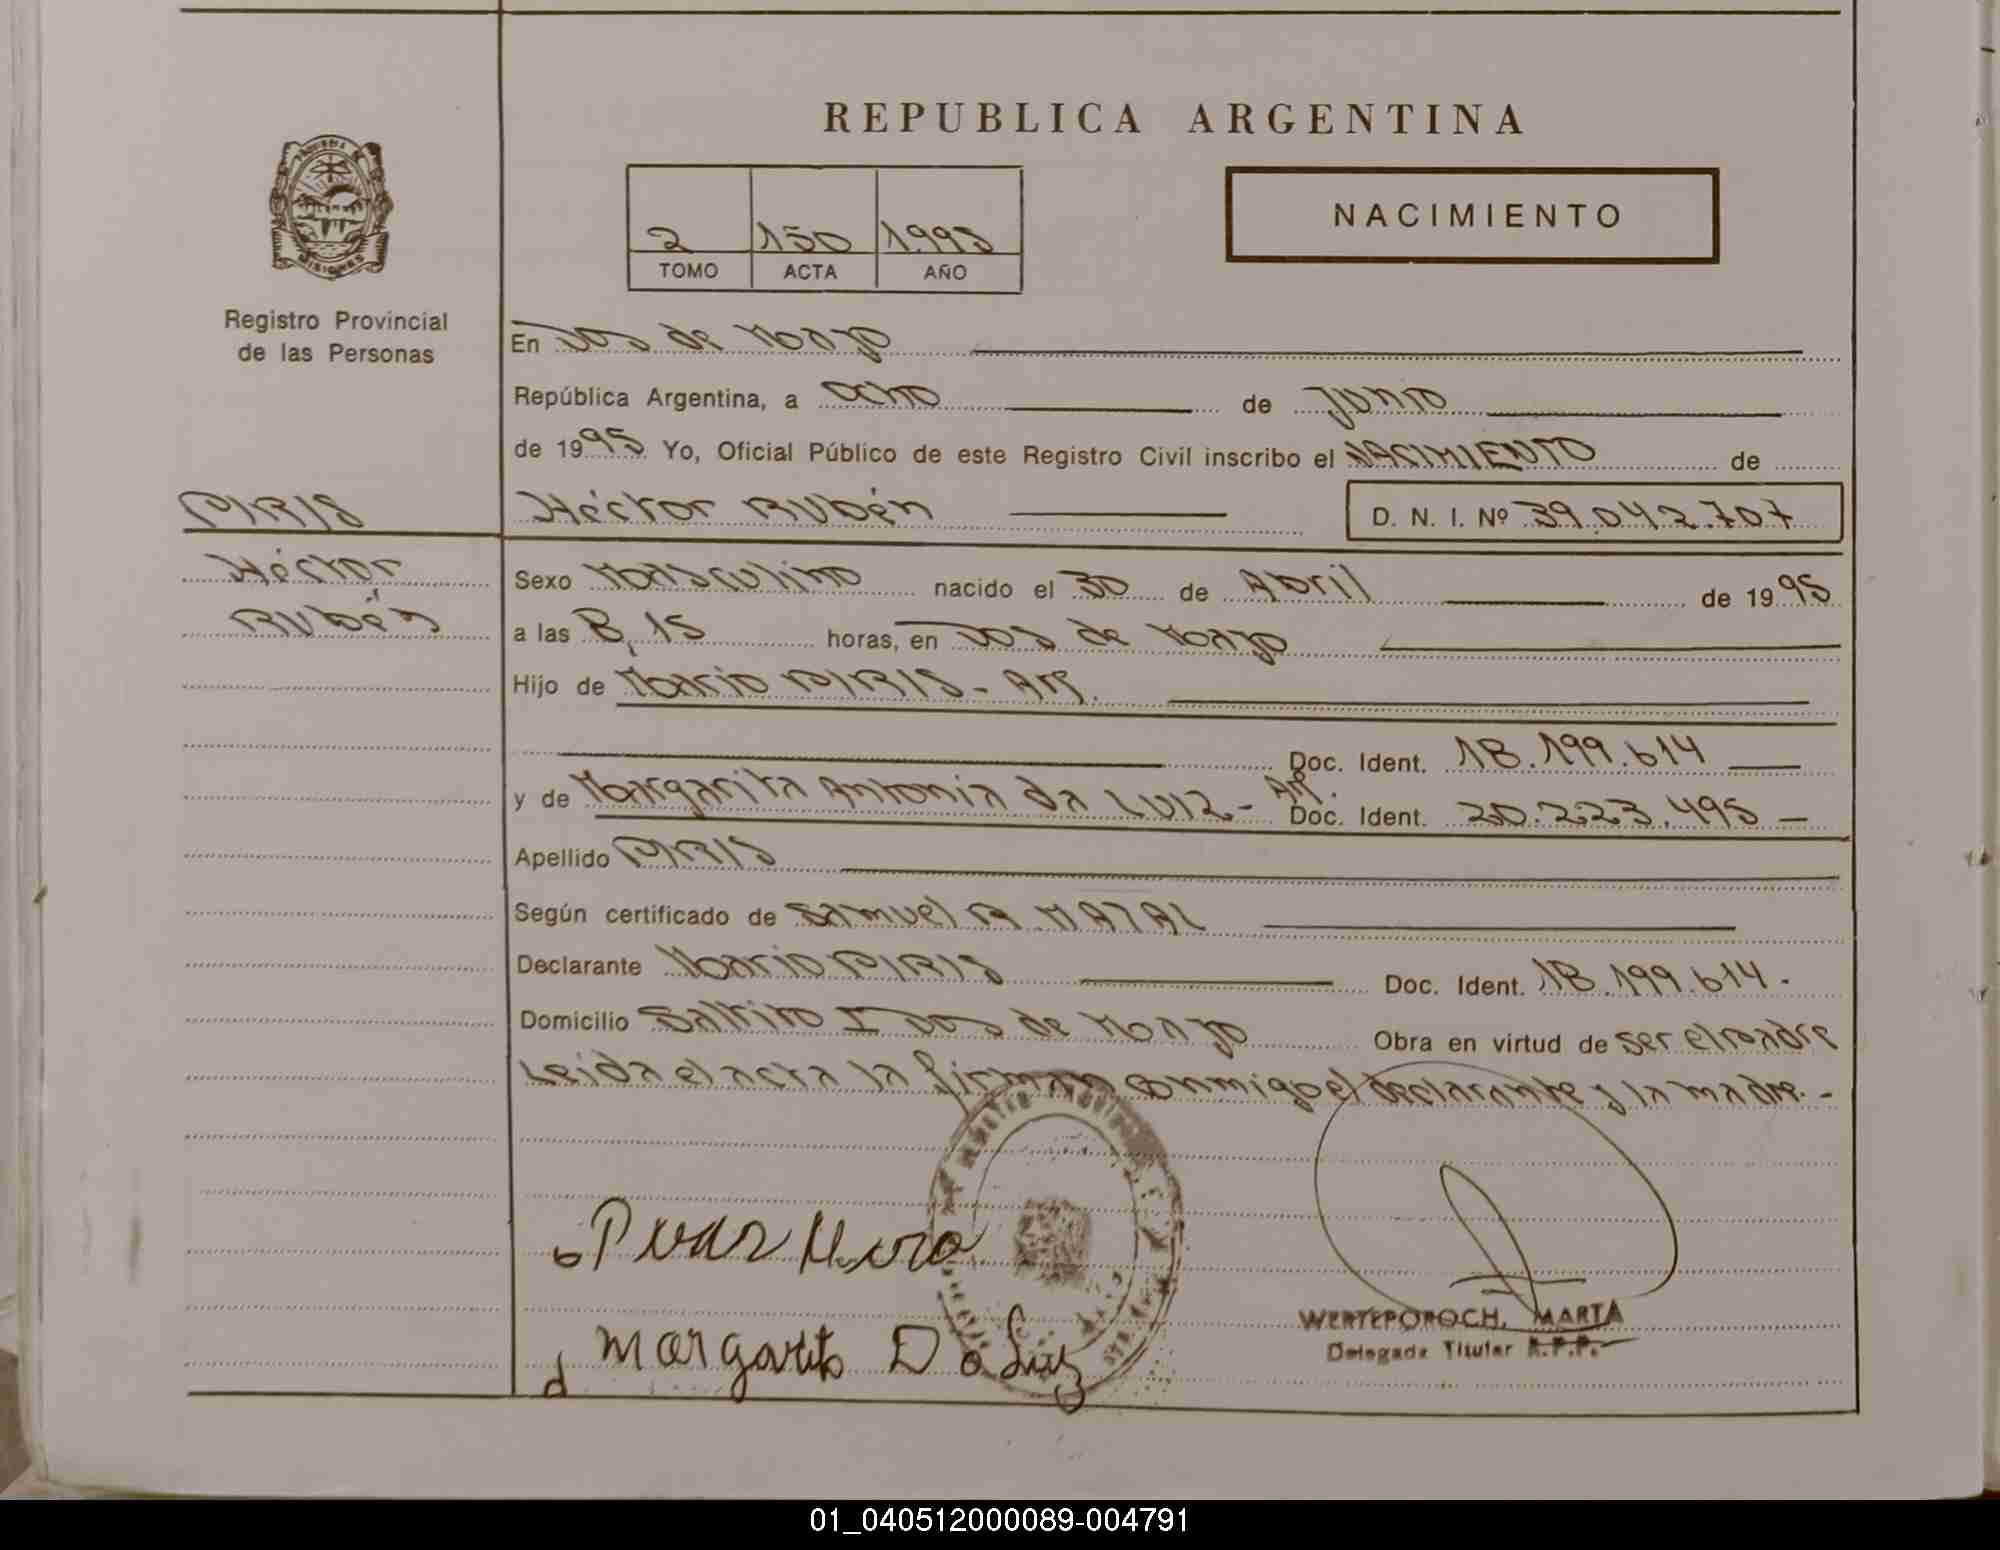 REPUBLICA ARGENTINA
NACIMIENTO
2 150 1995
TOMO ACTA AÑO
MISIONES
Registro Provincial
de las Personas
En Dos de Mayo
República Argentina, a Ocho de Junio
de 1995 Yo, Oficial Público de este Registro Civil inscribo el NACIMIENTO de
PIRIS
Héctor Rubén D. N. I. Nº 39.042.707
Héctor
Rubén
Sexo Masculino nacido el 30 de Abril de 1995
a las 8,15 horas, en Dos de Mayo
Hijo de Mario PIRIS - Arg.
Doc. Ident. 18.199.614
y de Margarita Antonia da LUIZ - Arg. Doc. Ident. 20.223.495
Apellido PIRIS
Según certificado de Samuel A MATAL
Declarante Mario PIRIS Doc. Ident. 18.199.614.
Domicilio Saltito I Dos de Mayo Obra en virtud de ser el padre
Leida el acta la firman conmigo el declarante y la madre.-
Margarita Da Luiz
WERTEPOROCH, MARTA
Delegada Titular R.P.P.
01_040512000089-004791